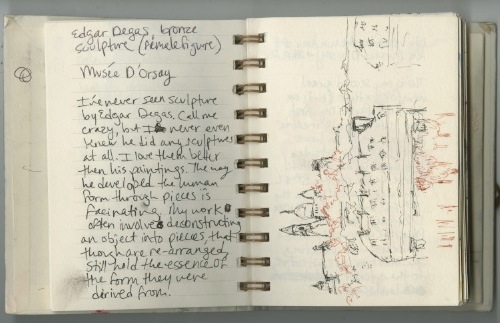 Edgar Degas, bronze
sculpture (female figure)
Musée D'orsay
I've never seen sculpture
by Edgar Degas. Call me
crazy, but I never even
knew he did any sculptures
at all. I love them better
then his paintings. The way
he developed the human
form through pieces is
facinating. My work
often involves deconstructing
an object into pieces, that
though are re-arranged,
still hold the essence of
the form they were
derived from.